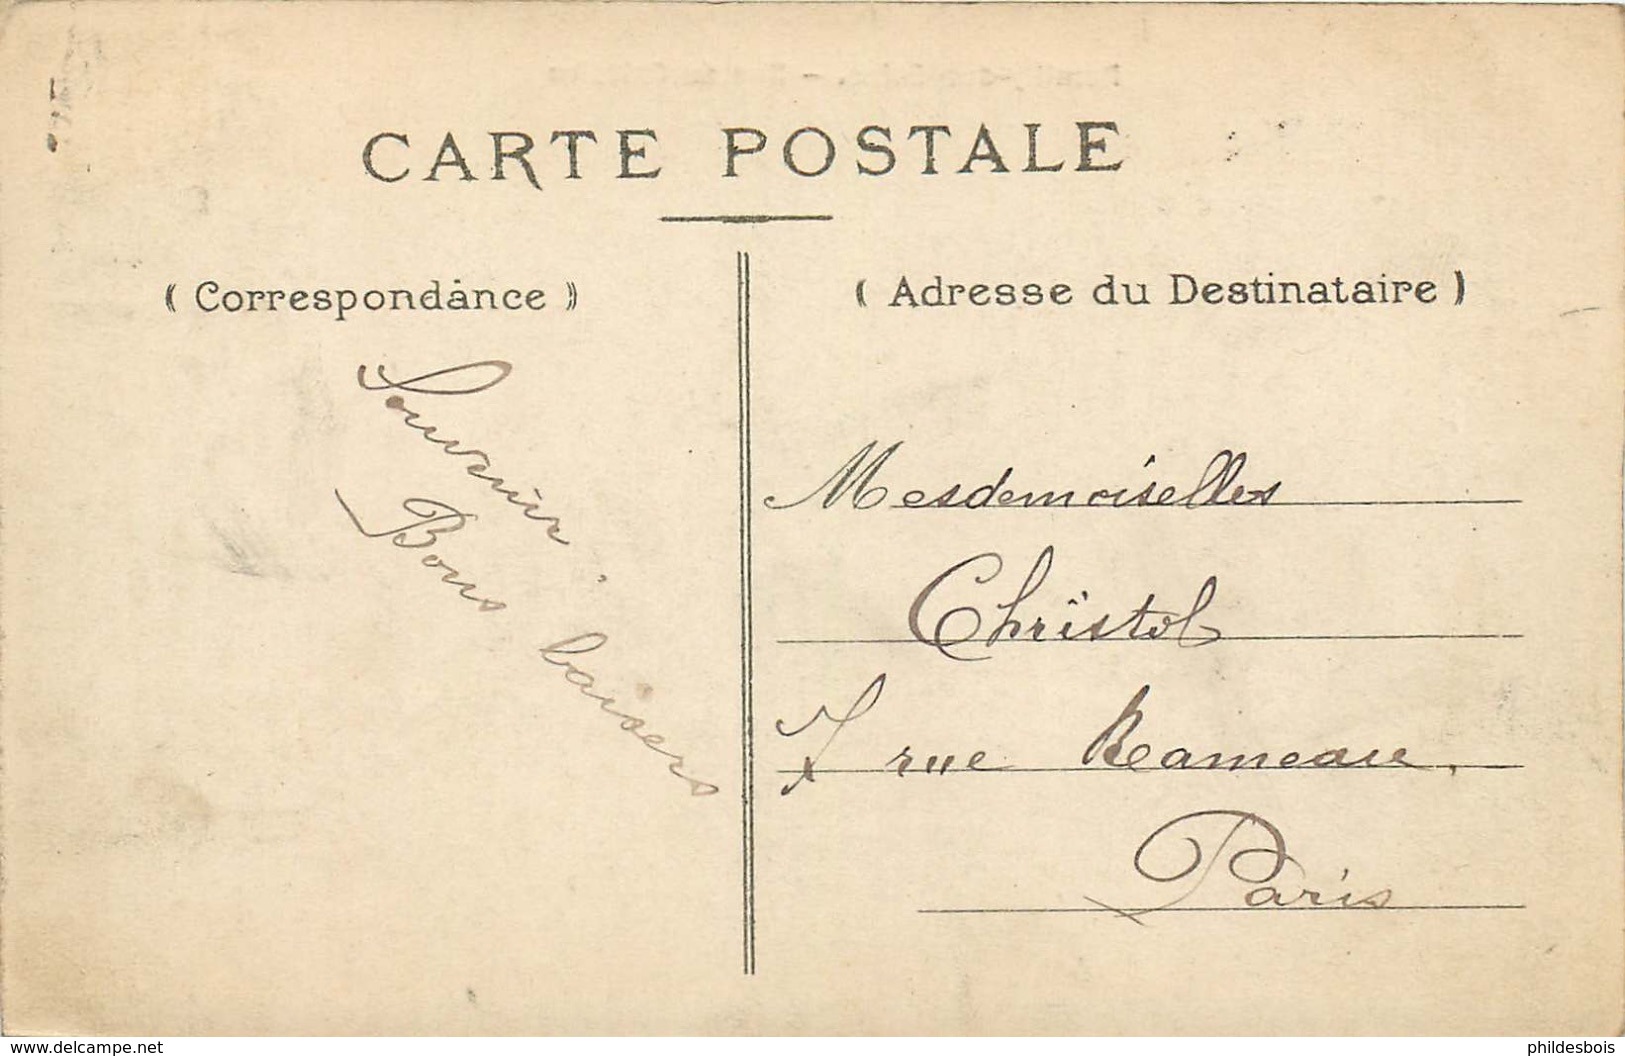 CARTE POSTALE
( Correspondance )
( Adresse du Destinataire )
Souvenir.
Bons baisers
Mesdemoiselles
Christol
7 rue Rameau.
Paris
www.delcampe.net
phildesbois